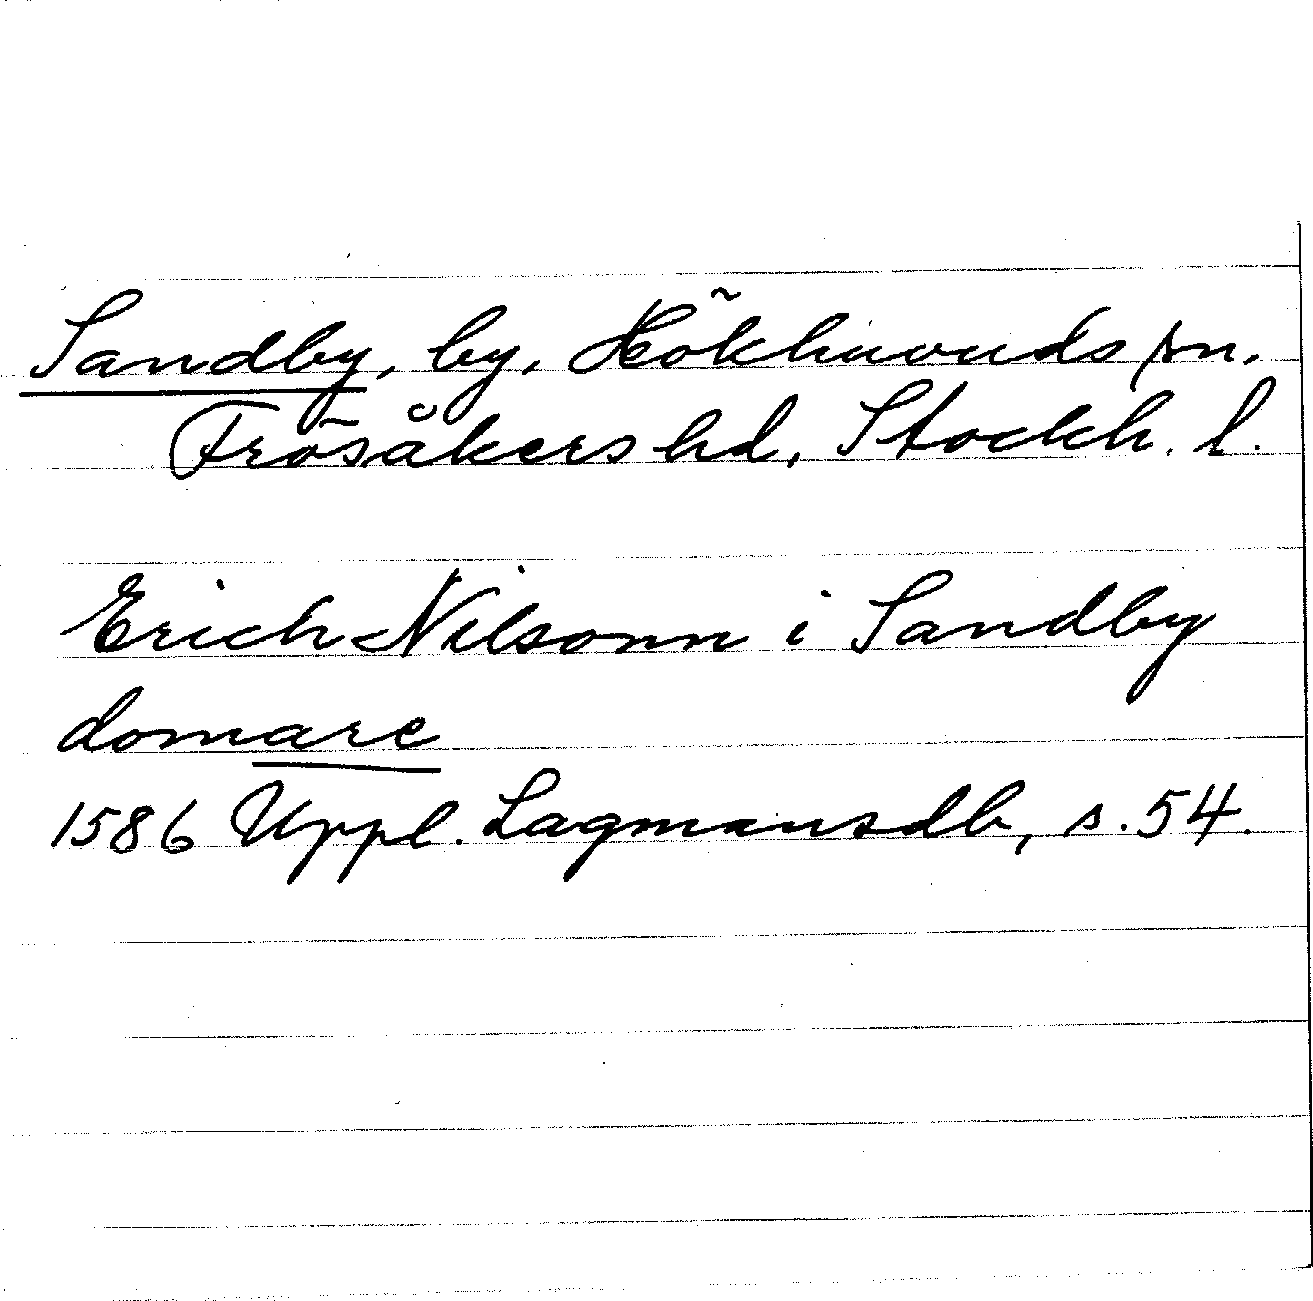 Sandby, by, Hökhuvuds sn,
Frösåkers hd, Stockh. l.
Erich Nilsonn i Sandby
domare
1586 Uppl. Lagmansdb, s. 54.